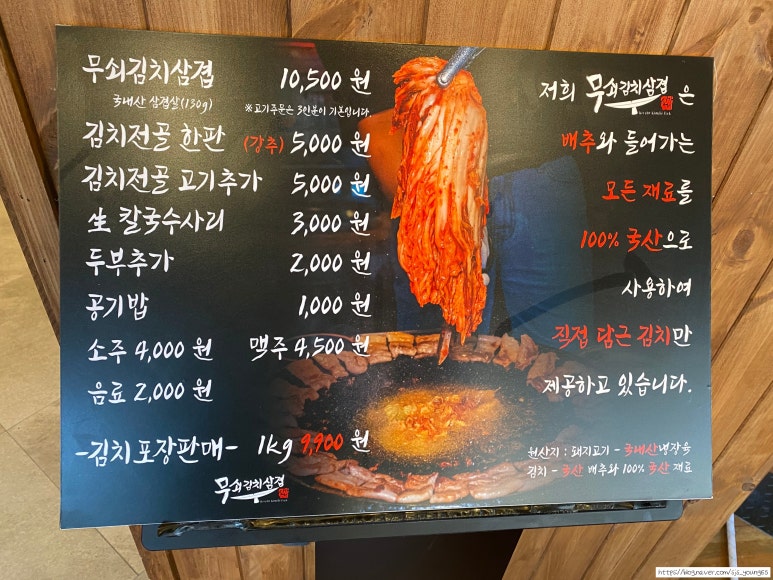 무쇠김치삼겹 10,500 원
국내산 삼겹살(130g) ※고기주문은 3인분이 기본입니다.
김치전골 한판 (강추) 5,000 원
김치전골 고기추가 5,000 원
生 칼국수사리 3,000 원
두부추가 2,000 원
공기밥 1,000 원
소주 4,000 원 맥주 4,500 원
음료 2,000 원
-김치 포장판매- 1kg 9,900 원
무쇠김치삼겹
저희 무쇠김치삼겹 은
배추와 들어가는
모든 재료를
100% 국산으로
사용하여
직접 담근 김치만
제공하고 있습니다.
원산지 : 돼지고기 - 국내산냉장육
김치 - 국산 배추와 100% 국산 재료